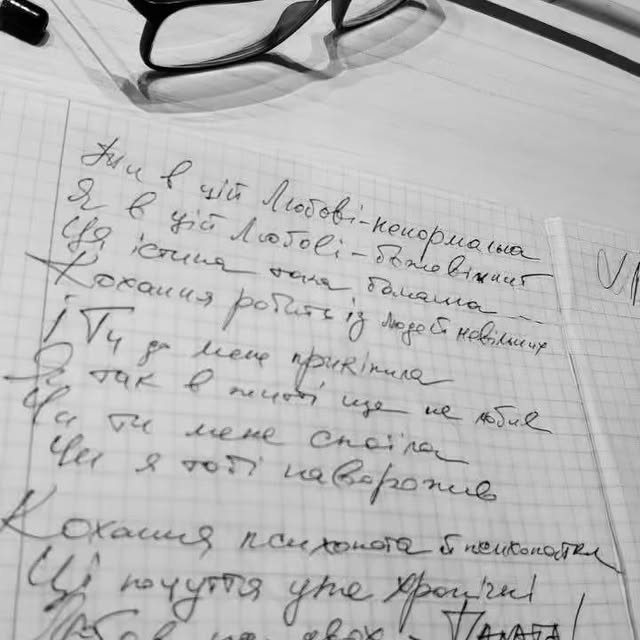 Ти в цій Любові-ненормальна
Я в цій Любові-божевільний
Ця істина така банальна
Кохання робить із людей невільних
І Ти до мене прикипіла
Я так в житті ще не любив
Чи ти мене споїла
Чи я тобі наворожив
Кохання психопата й психопатки
Ці почуття уже хронічні
Любов на двох - ПАЛАТА!